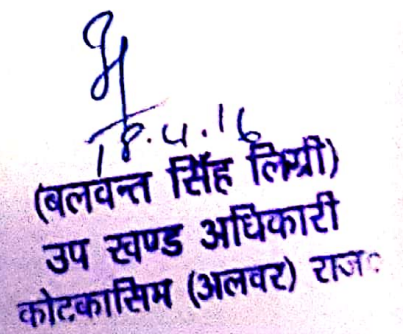 18.4.16
(बलवन्त सिंह लिग्री)
उप खण्ड अधिकारी
कोटकासिम (अलवर) राज॰